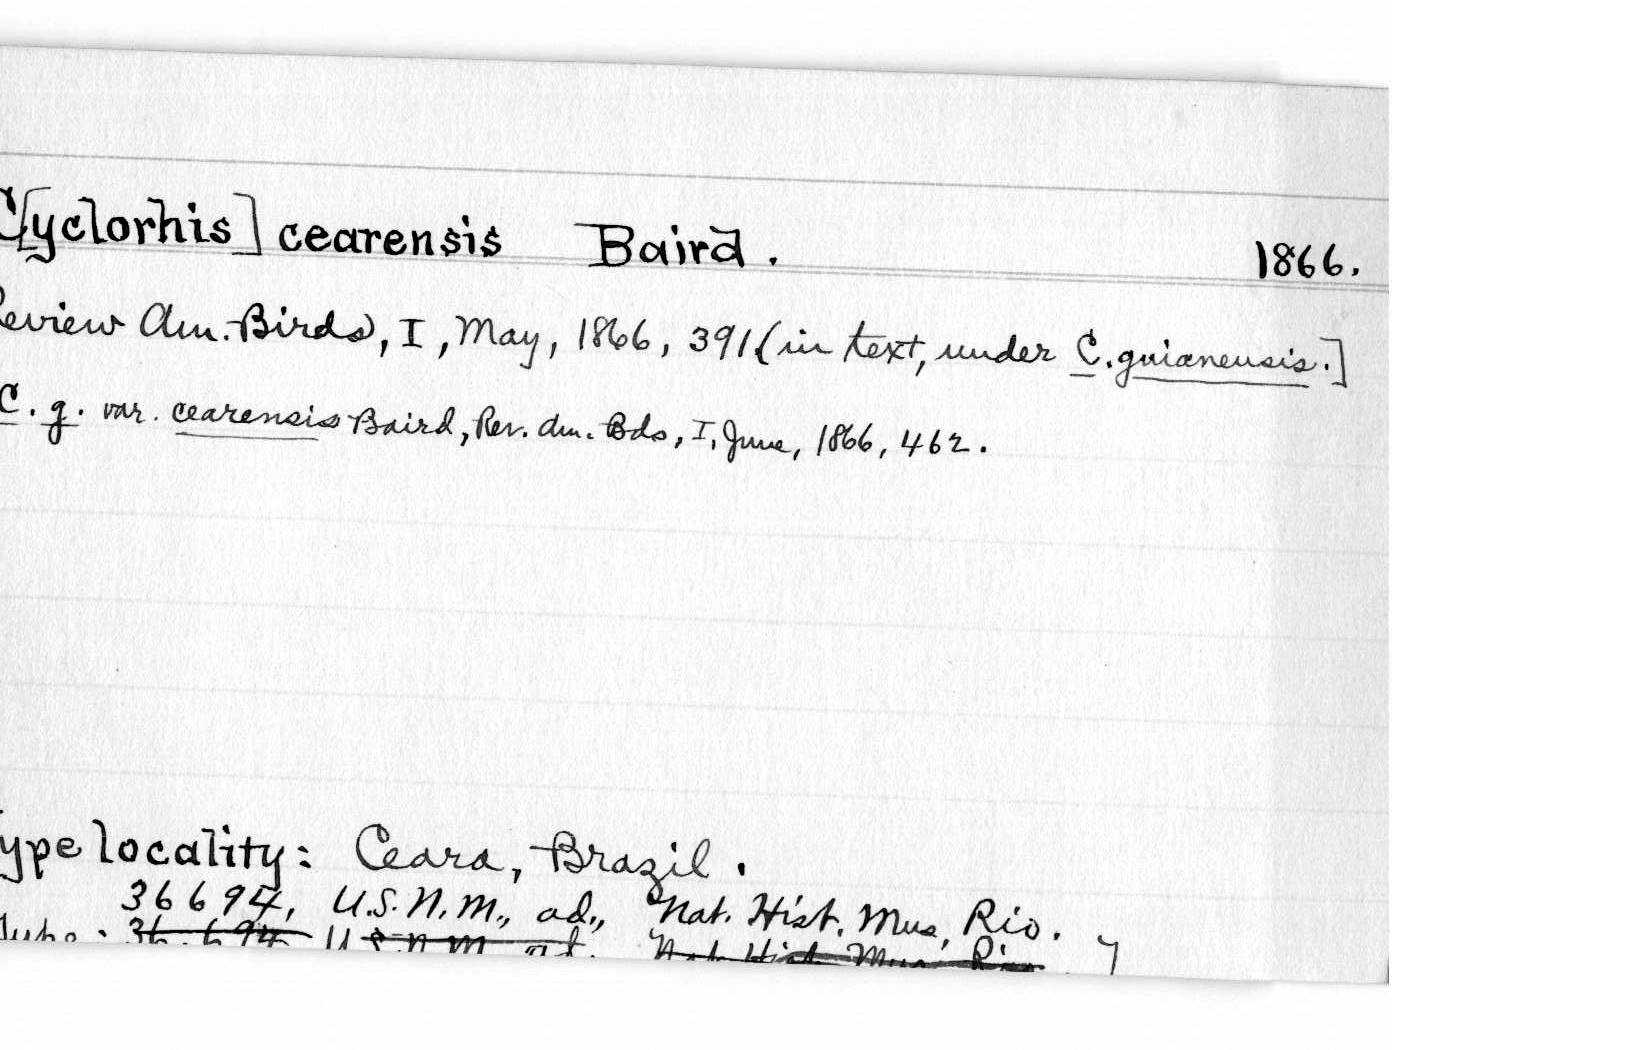 C[yclorhis] cearensis Baird. 1866.
eview Am. Birds, I, May, 1866, 391 (in text, under C. guianensis.]
C. g. var. cearensis Baird, Rev. Am. Bds, I, June, 1866, 462.
ype locality: Ceara, Brazil.
36694, U.S.N.M., ad., Nat. Hist. Mus, Rio.
Type: 36.694 U.S.N.M. ad. Nat. Hist. Mus. Rio